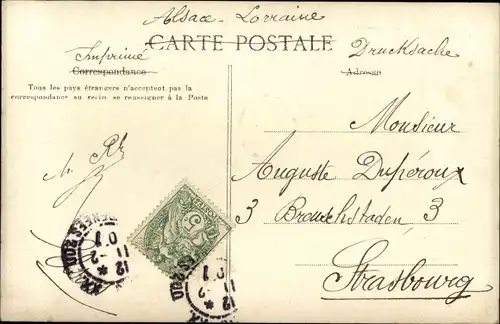 Alsace - Lorraine
CARTE POSTALE
Imprimé
Drucksache
Correspondance
Adresse
Tous les pays étrangers n'acceptent pas la
correspondance au recto, se renseigner à la Poste
Monsieur
Auguste Dupéroux
3 Brouchstaden, 3
Strasbourg
5
12
11-2
07
12